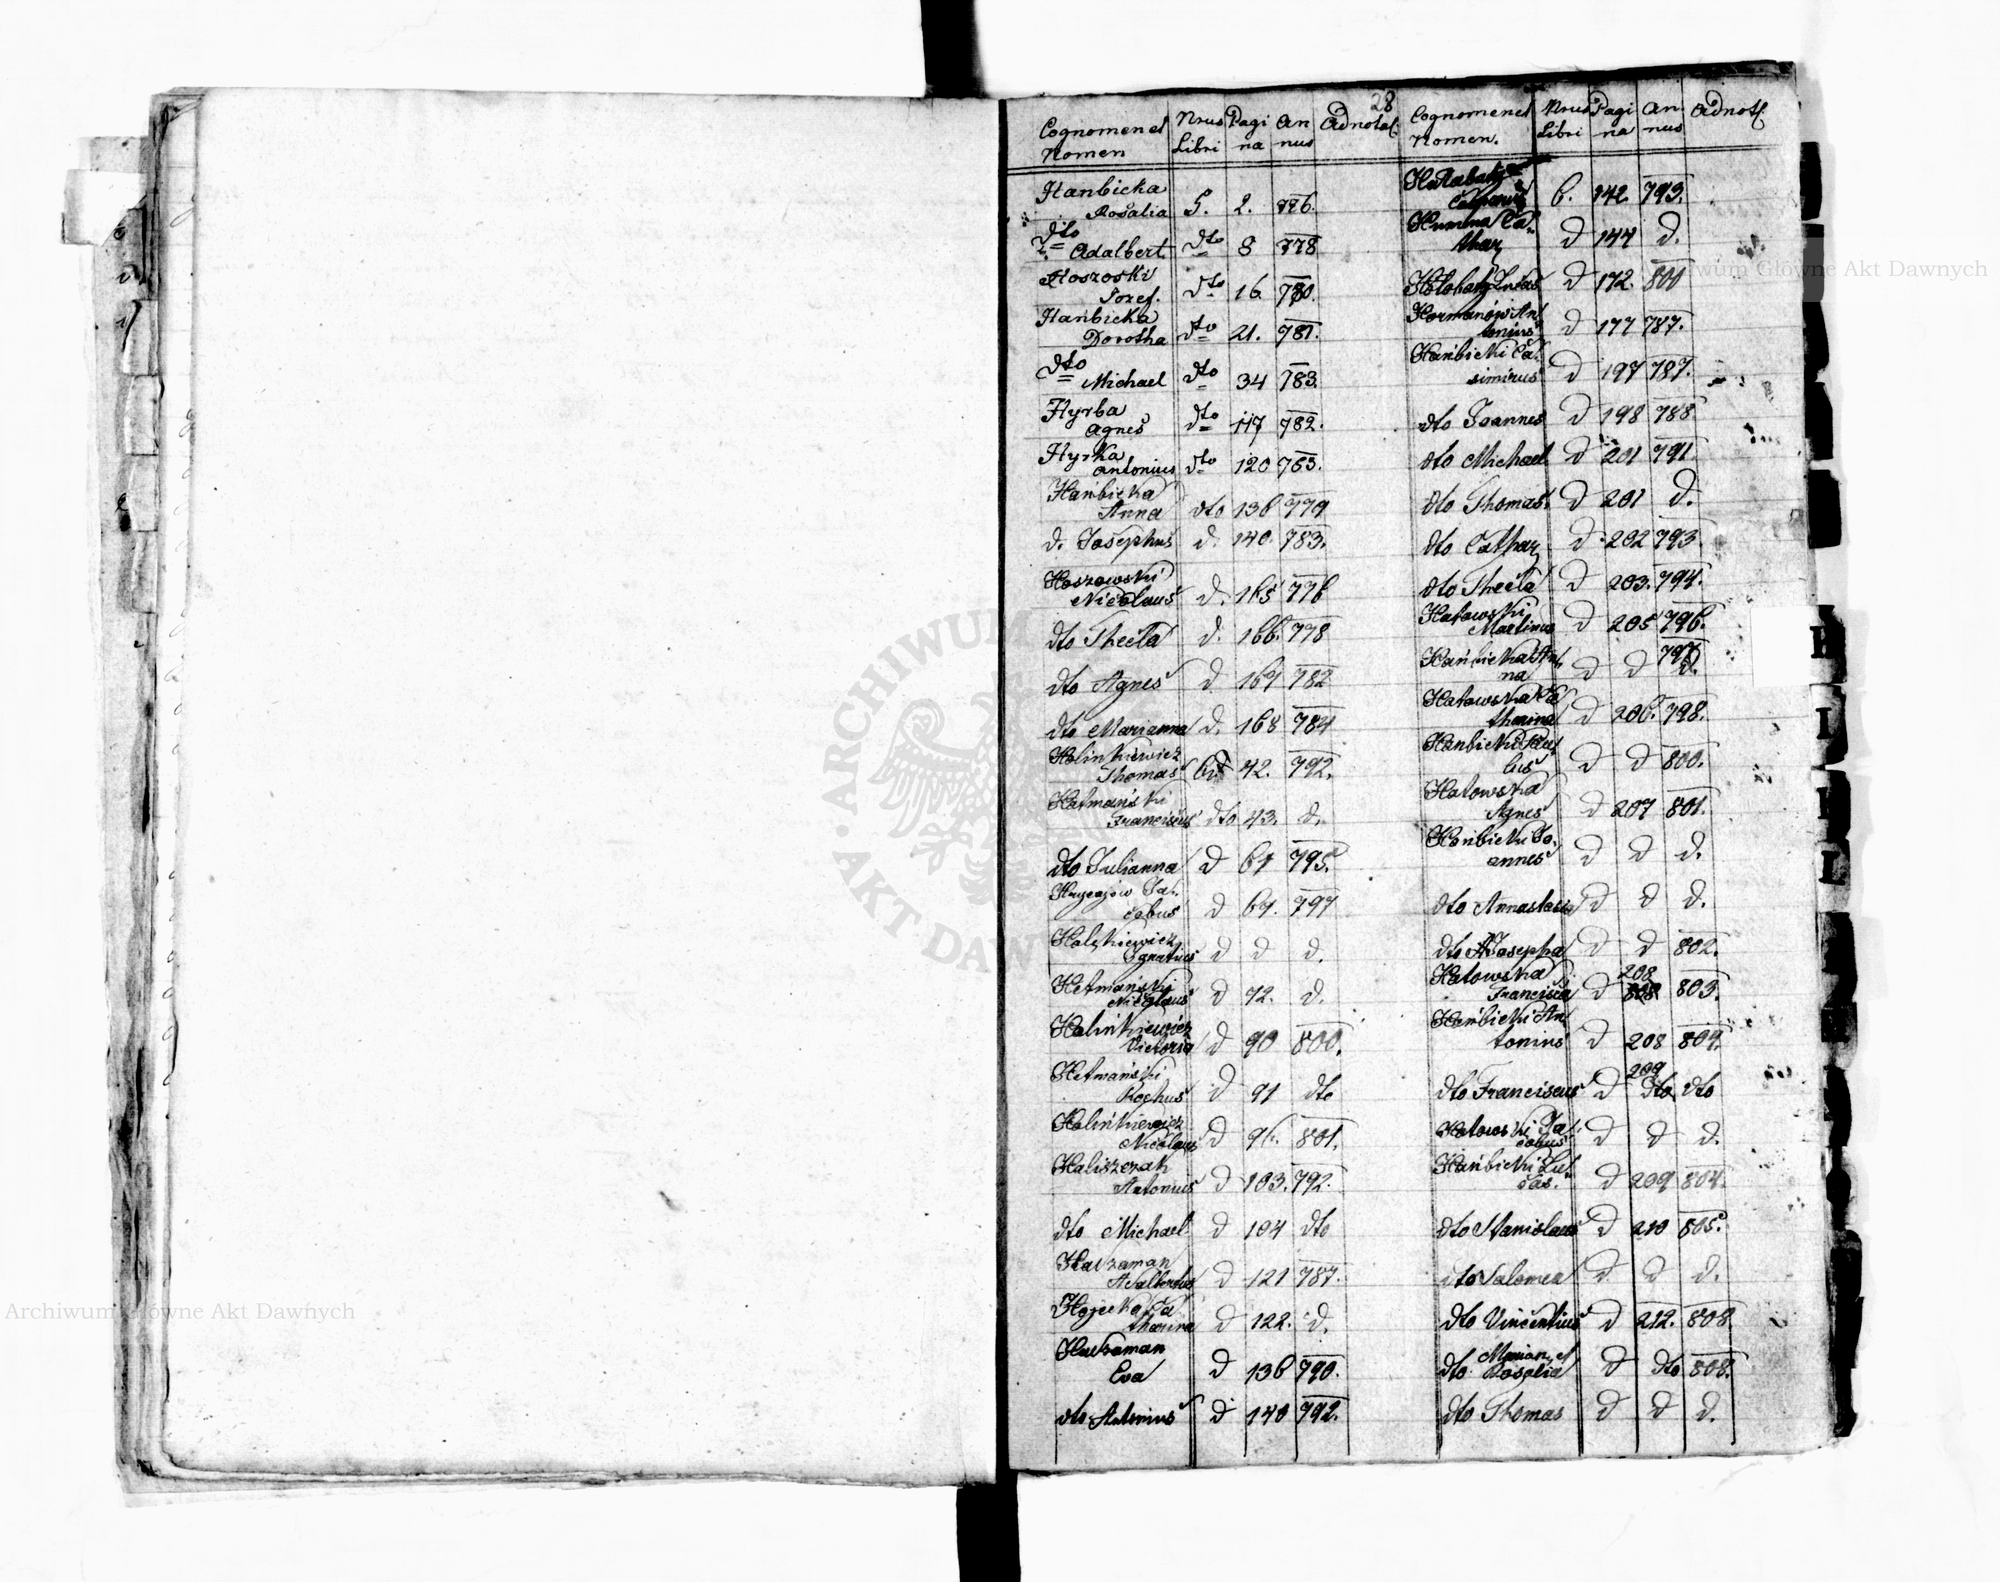 28
Cognomen et Nrus Pagi An Adnotat.
Nomen Libri na nus
Hanbicka
Rosalia 5. 2. 776.
dto
Adalbert dto 8 778
Hoszoski
Jozef. dto 16. 780.
Hanbicka
Dorotha dto 21. 781.
dto
Michael dto 34 783.
Hyrba
Agnes dto 117 782.
Hyrka
Antonius dto 120 783.
Hanbicka
Anna dto 136 779
d. Josephus d. 140. 783.
Hoszowski
Nicolaus d. 165 776
dto Thecla d. 166. 778
dto Agnes d 167 782
dto Marianna d. 168 784
Holinkiewicz
Thomas 42. 792.
Hetmański
Franciscus dto 43. d.
dto Julianna d 61 795.
Ja-
cobus d 67. 797
Ignatius d d d.
Hetmański
Nicolaus d 72. d.
Holinkiewicz
Victoria d 90 800.
Hetmański
Rochus d 91 dto
Holinkiewicz
Nicolaus d 96. 801.
Haliszczak
Antonius d 103. 792.
dto Michael d 104 dto
Adalbertus d 121 787.
Ca
tharina d 122. d.
Eva d 136 790.
dto Antonius d 140 792.
Cognomen et Nrus Pagi An Adnot.
Nomen. Libri na nus
6. 142. 793.
Humena Ca-
thar d 144 d.
Holobatz Lucas d 172. 800
Hormanów An
tonius d 177 787.
Hanbicki Ca-
simirus d 197 787.
dto Joannes d 198 788
dto Michael d 201 791
dto Thomas d 201 d.
dto Cathar d 202 793.
dto Thecla d 203. 794.
Hatowski
Martinus d 205 796.
Hanbicka An 797
na d d d.
Hatowska Ca
tharina d 206. 798.
Hanbicki Pau
lus d d 800.
Hatowska
Agnes d 207 801.
Hanbicki Jo-
annes d d d.
dto Annastasia d d d.
dto Josepha d d 802.
Hatowska 208
Francisca d 803.
Hanbicki An
tonius d 208 804.
209
dto Franciscus d dto dto
Hatowski Ja-
cobus d d d.
Hanbicki Lu-
cas. d 209 804.
dto Stanislaus d 210 805.
dto Salomea d d d.
dto Vincentius d 212. 808.
Marian. et
dto Rosalia d dto 808.
dto Thomas d d d.
H
I
L
ARCHIWUM GŁÓWNE AKT DAWNYCH
Archiwum Główne Akt Dawnych
Archiwum Główne Akt Dawnych